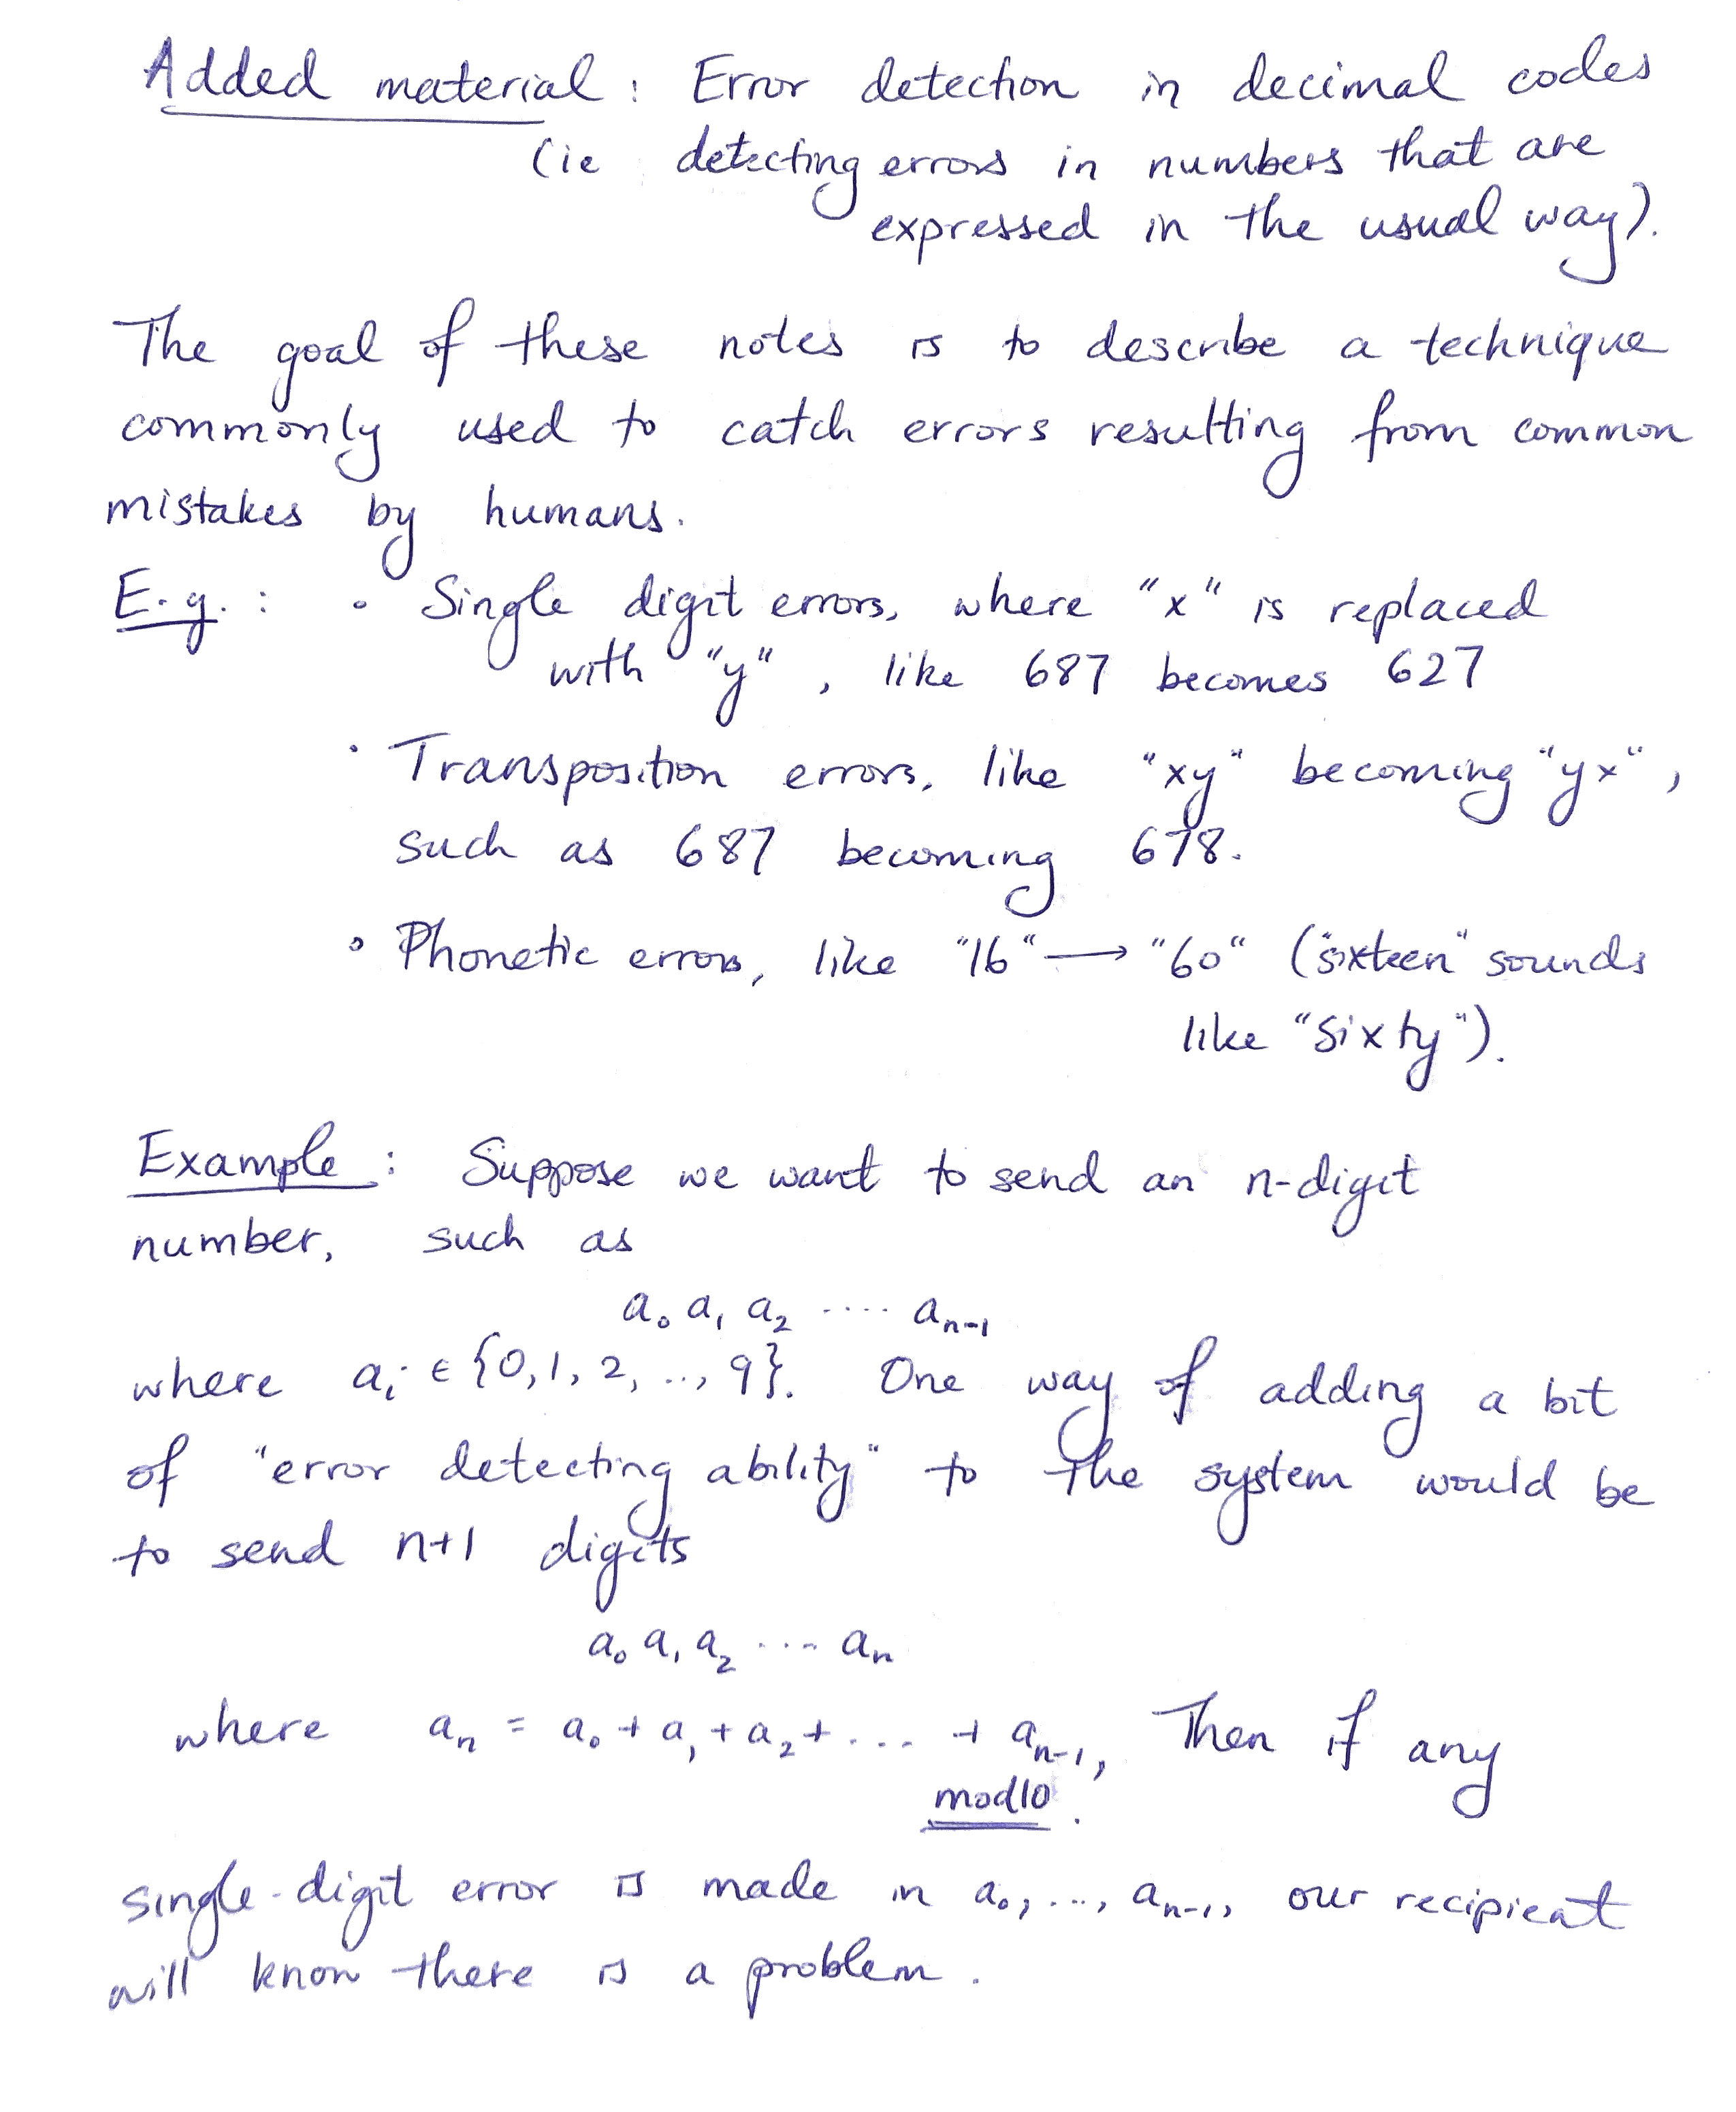 Added material : Error detection in decimal codes
(ie detecting errors in numbers that are
expressed in the usual way).
The goal of these notes is to describe a technique
commonly used to catch errors resulting from common
mistakes by humans.
E.g. : • Single digit errors, where "x" is replaced
with "y", like 687 becomes 627
• Transposition errors, like "xy" becoming "yx",
such as 687 becoming 678.
• Phonetic errors, like "16" → "60" ("sixteen" sounds
like "sixty").
Example : Suppose we want to send an n-digit
number, such as
a₀ a₁ a₂ .... aₙ₋₁
where aᵢ ∈ {0, 1, 2, .., 9}. One way of adding a bit
of "error detecting ability" to the system would be
to send n+1 digits
a₀ a₁ a₂ .... aₙ
where aₙ = a₀ + a₁ + a₂ + .... + aₙ₋₁, Then if any
mod10.
single-digit error is made in a₀, ..., aₙ₋₁, our recipient
will know there is a problem.